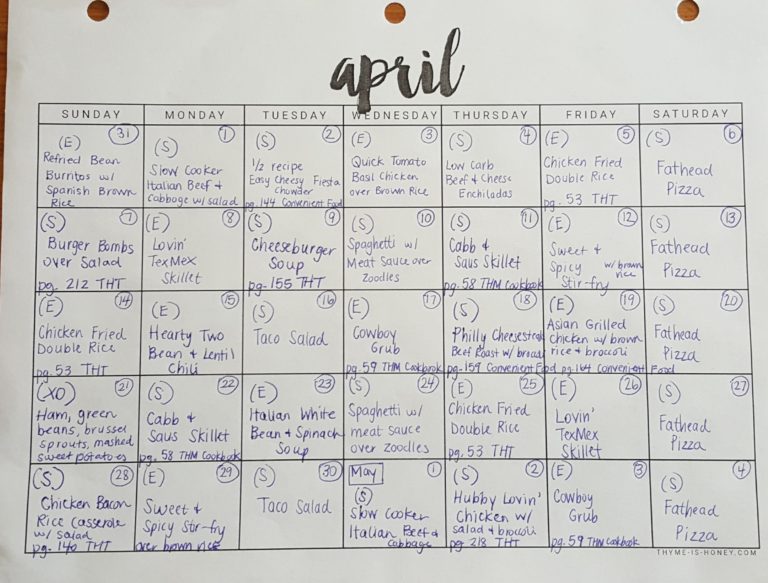 april
SUNDAY MONDAY TUESDAY WEDNESDAY THURSDAY FRIDAY SATURDAY
(E) 31
Refried Bean
Burritos w/
Spanish Brown
Rice
(S) 1
Slow Cooker
Italian Beef &
Cabbage w/ salad
(S) 2
1/2 recipe
Easy Cheesy Fiesta
chowder
pg. 144 Convenient Food
(E) 3
Quick Tomato
Basil Chicken
over Brown Rice
(S) 4
Low Carb
Beef & Cheese
Enchiladas
(E) 5
Chicken Fried
Double Rice
pg. 53 THT
(S) 6
Fathead
Pizza
(S) 7
Burger Bombs
over Salad
pg. 212 THT
(E) 8
Lovin'
TexMex
Skillet
(S) 9
Cheeseburger
Soup
pg. 155 THT
(S) 10
Spaghetti w/
Meat Sauce over
Zoodles
(S) 11
Cabb &
Saus Skillet
pg. 58 THM Cookbook
(E) 12
Sweet &
Spicy w/ brown
rice
Stir-fry
(S) 13
Fathead
Pizza
(E) 14
Chicken Fried
Double Rice
pg. 53 THT
(E) 15
Hearty Two
Bean & Lentil
Chili
(S) 16
Taco Salad
(E) 17
Cowboy
Grub
pg. 59 THM Cookbook
(S) 18
Philly Cheesesteak
Beef Roast w/ brocoli
pg. 159 Convenient Food
(E) 19
Asian Grilled
chicken w/ brown
rice & broccoli
pg. 164 Convenient Food
(S) 20
Fathead
Pizza
(XO) 21
Ham, green
beans, brussel
sprouts, mashed
sweet potatoes
(S) 22
Cabb &
Saus Skillet
pg. 58 THM Cookbook
(E) 23
Italian White
Bean & Spinach
Soup
(S) 24
Spaghetti w/
meat sauce
over zoodles
(E) 25
Chicken Fried
Double Rice
pg. 53 THT
(E) 26
Lovin'
TexMex
Skillet
(S) 27
Fathead
Pizza
(S) 28
Chicken Bacon
Rice Casserole
w/ Salad
pg. 140 THT
(E) 29
Sweet &
Spicy Stir-fry
over brown rice
(S) 30
Taco Salad
May 1
(S)
Slow Cooker
Italian Beef &
Cabbage
(S) 2
Hubby Lovin'
Chicken w/
salad & brocoli
pg 218 THT
(E) 3
Cowboy
Grub
pg. 59 THM Cookbook
(S) 4
Fathead
Pizza
THYME-IS-HONEY.COM